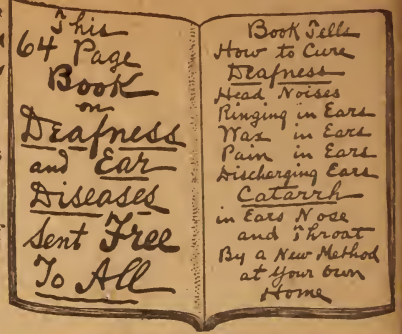 This
64 Page
Book
on
Deafness
and Ear
Diseases
Sent Free
To All
Book Tells
How to Cure
Deafness
Head Noises
Ringing in Ears
Wax in Ears
Pain in Ears
Discharging Ears
Catarrh
in Ears Nose
and Throat
By a New Method
at your own
Home